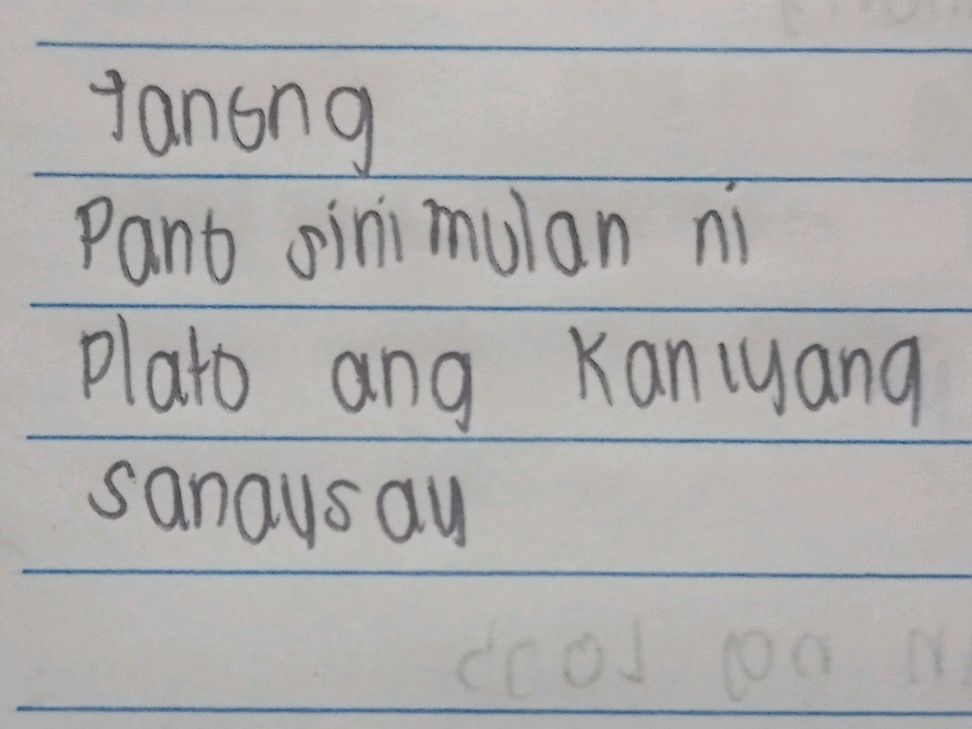 Tanong
Pano sinimulan ni
Plato ang Kaniyang
sanaysay